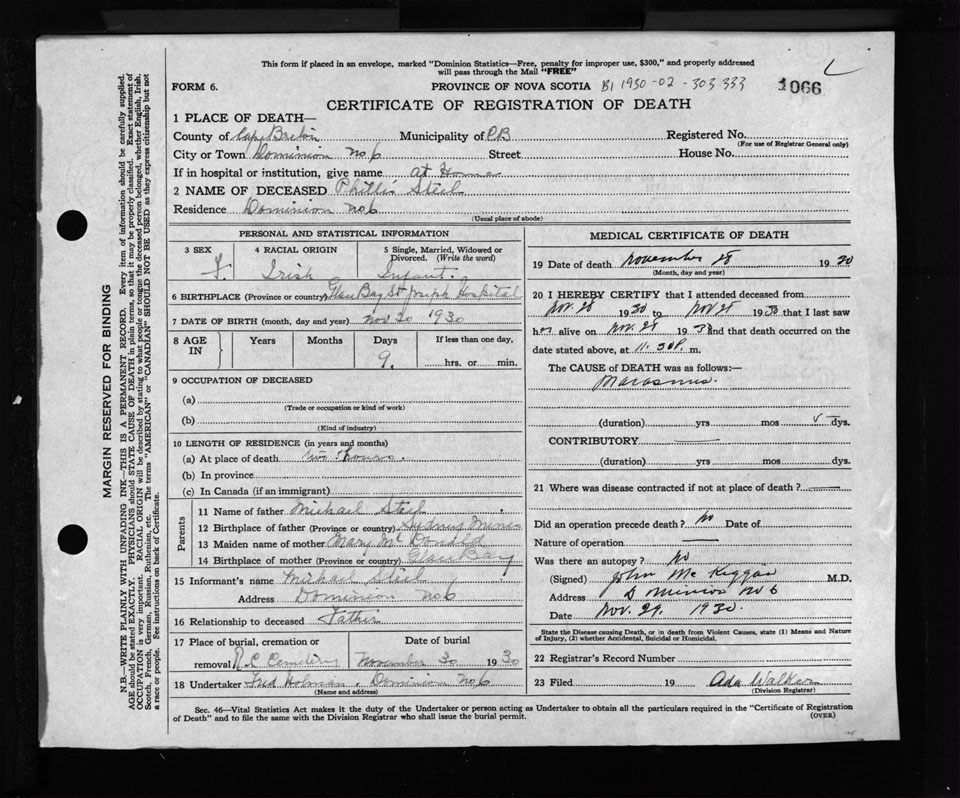 This form if placed in an envelope, marked "Dominion Statistics—Free, penalty for improper use, $300," and properly addressed
will pass through the Mail "FREE"
FORM 6.
PROVINCE OF NOVA SCOTIA B1 1930-02-303 333
1066
CERTIFICATE OF REGISTRATION OF DEATH
1 PLACE OF DEATH—
County of Cape Breton Municipality of CB Registered No.
(For use of Registrar General only)
City or Town Dominion No 6 Street House No.
If in hospital or institution, give name at Home
2 NAME OF DECEASED Phillis Steel
Residence Dominion No 6
(Usual place of abode)
PERSONAL AND STATISTICAL INFORMATION
3 SEX 4 RACIAL ORIGIN 5 Single, Married, Widowed or
Divorced. (Write the word)
F. Irish Infant.
6 BIRTHPLACE (Province or country) Glace Bay St Joseph Hospital
7 DATE OF BIRTH (month, day and year) Nov 20 1930
8 AGE IN Years Months Days If less than one day,
9. hrs. or min.
9 OCCUPATION OF DECEASED
(a)
(Trade or occupation or kind of work)
(b)
(Kind of industry)
10 LENGTH OF RESIDENCE (in years and months)
(a) At place of death hours.
(b) In province
(c) In Canada (if an immigrant)
Parents
11 Name of father Michael Steel
12 Birthplace of father (Province or country) Sydney Mines
13 Maiden name of mother Mary McDonald
14 Birthplace of mother (Province or country) Glace Bay
15 Informant's name Michael Steel
Address Dominion No 6
16 Relationship to deceased Father
17 Place of burial, cremation or Date of burial
removal R.C. Cemetery November 30 1930
18 Undertaker Fred Holman. Dominion No 6
(Name and address)
MEDICAL CERTIFICATE OF DEATH
19 Date of death November 28 1930
(Month, day and year)
20 I HEREBY CERTIFY that I attended deceased from
Nov. 28 1930 to Nov 28 1930 that I last saw
her alive on Nov. 28 1930 and that death occurred on the
date stated above, at 11.30P. m.
The CAUSE of DEATH was as follows:—
Marasmus.
(duration) yrs mos dys.
CONTRIBUTORY
(duration) yrs mos dys.
21 Where was disease contracted if not at place of death?
Did an operation precede death? No Date of
Nature of operation
Was there an autopsy? No
(Signed) John Mc Keggan M.D.
Address Dominion No 6
Date Nov. 29. 1930.
State the Disease causing Death, or in death from Violent Causes, state (1) Means and Nature
of Injury, (2) whether Accidental, Suicidal or Homicidal.
22 Registrar's Record Number
23 Filed 19 Ada Walker
(Division Registrar)
Sec. 46—Vital Statistics Act makes it the duty of the Undertaker or person acting as Undertaker to obtain all the particulars required in the "Certificate of Registration
of Death" and to file the same with the Division Registrar who shall issue the burial permit.
(OVER)
MARGIN RESERVED FOR BINDING
N.B.—WRITE PLAINLY WITH UNFADING INK—THIS IS A PERMANENT RECORD. Every item of information should be carefully supplied.
AGE should be stated EXACTLY. PHYSICIANS should STATE CAUSE OF DEATH in plain terms, so that it may be properly classified. Exact statement of
OCCUPATION is very important. RACIAL ORIGIN will be described by stating to what people or tongue the deceased person belonged, whether English, Irish,
Scotch, French, German, Russian, Ruthenian, etc. The terms "AMERICAN" or "CANADIAN" SHOULD NOT BE USED as they express citizenship but not
a race or people. See instructions on back of Certificate.